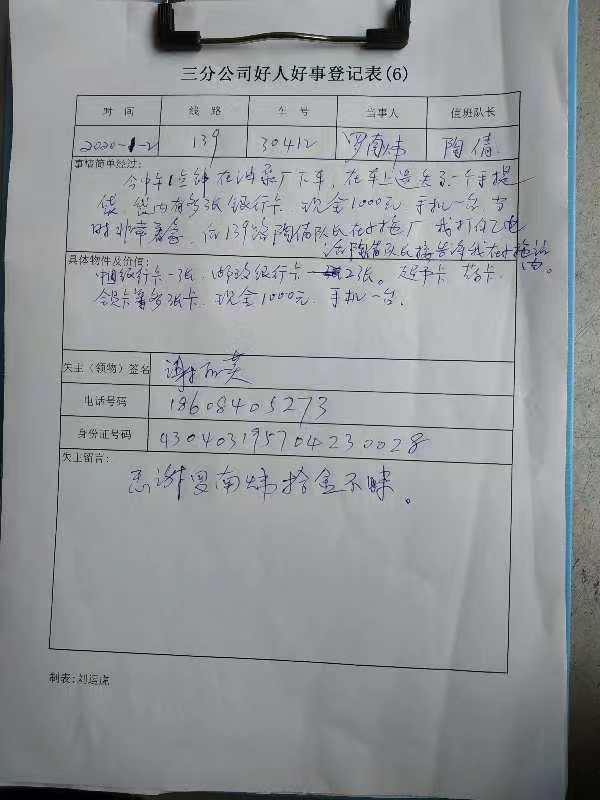 三分公司好人好事登记表(6)
时 间 线 路 车 号 当事人 值班队长
2020-1-2 139 30412 罗南炜 陶倩
事情简单经过:
今中午1点钟在油泵厂下车,在车上遗失了一个手提
袋 袋内有多张银行卡 现金1000元 手机一台 当
时非常着急,
具体物件及价值:
中国银行卡一张,邮政银行卡 2张。
会员卡等多张卡、现金1000元、手机一台.
失主(领物)签名
电话号码 18608405273
身份证号码 430403195704230028
失主留言:
感谢罗南炜拾金不昧。
制表:刘运虎